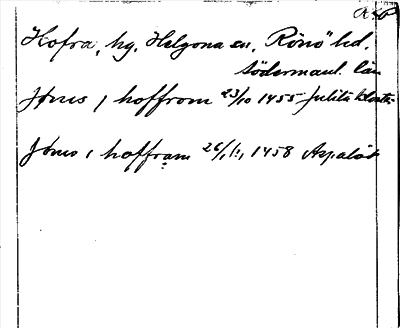 Hofra, hg, Helgona sn, Rönö hd.
Södermanl. län
Jönis i hoffrom 23/10 1455 Julita kloster
Jönis i hoffram 26/11 1458 Aspalöt